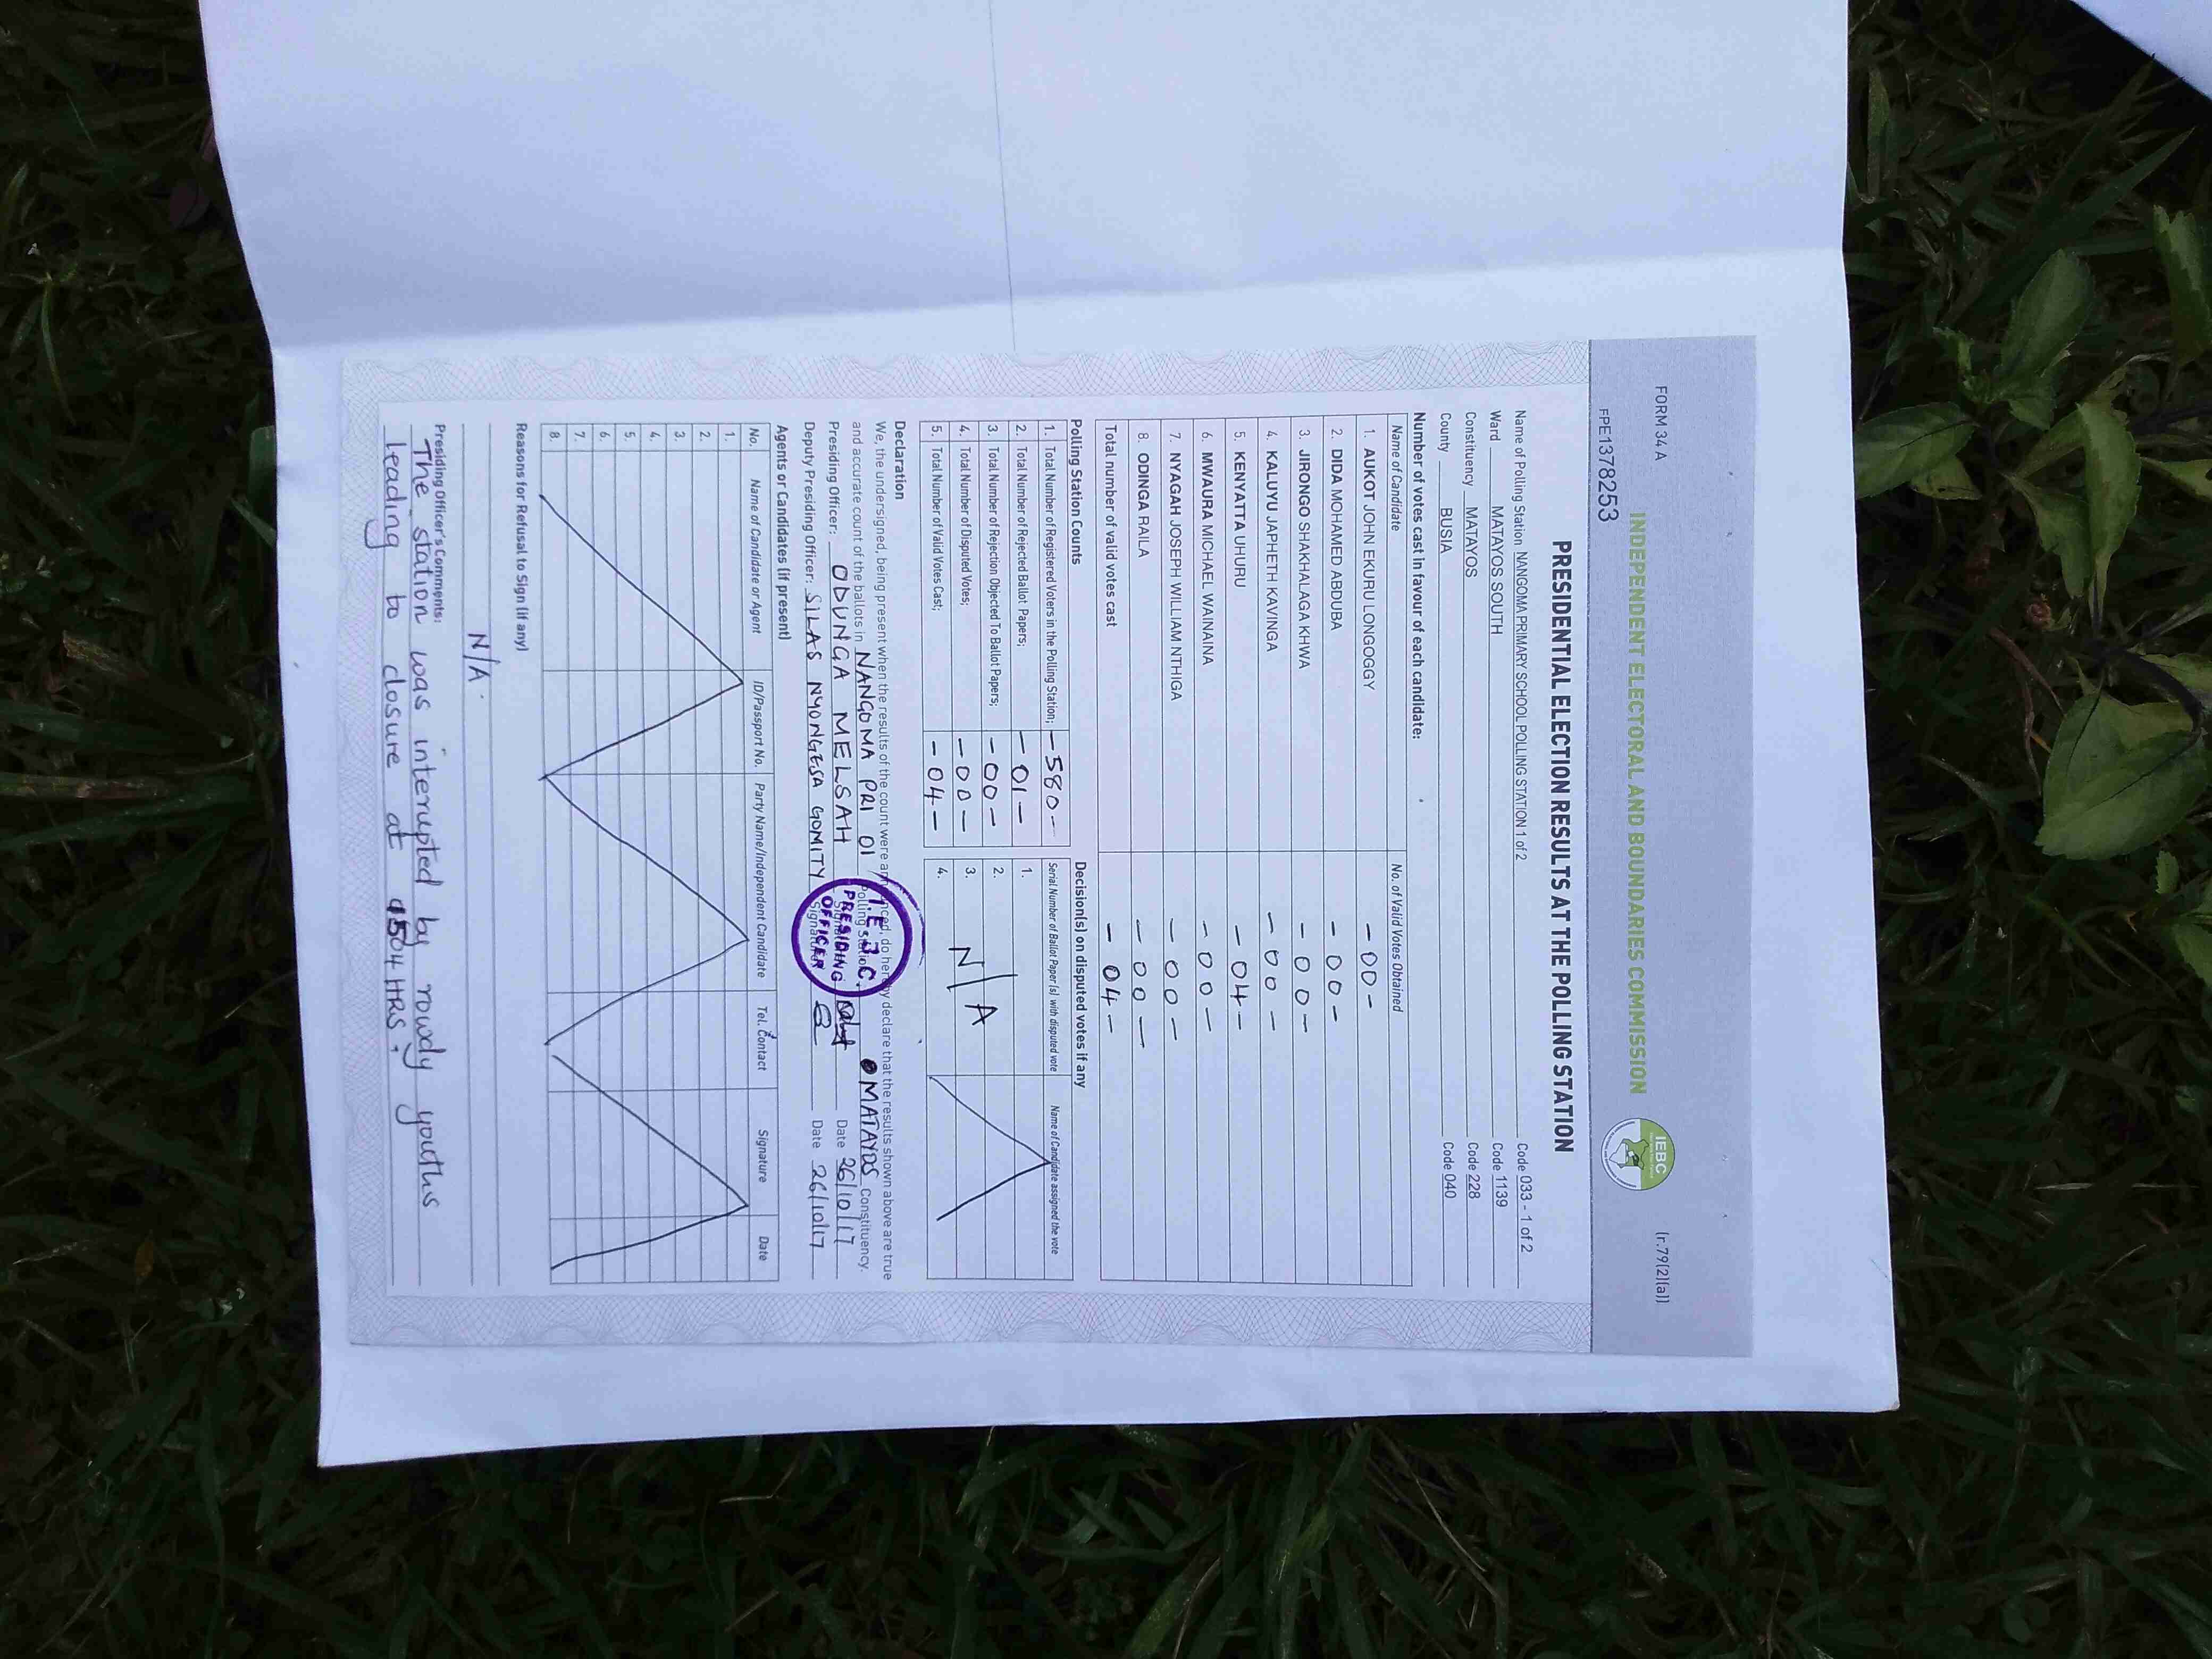 FORM 34A
(r.79(2)(a))
INDEPENDENT ELECTORAL AND BOUNDARIES COMMISSION
IEBC
FPE1378253
PRESIDENTIAL ELECTION RESULTS AT THE POLLING STATION
Name of Polling Station NANGOMA PRIMARY SCHOOL POLLING STATION 1 of 2 Code 033 - 1 of 2
Ward MATAYOS SOUTH Code 1139
Constituency MATAYOS Code 228
County BUSIA Code 040
Number of votes cast in favour of each candidate:
Name of Candidate No. of Valid Votes Obtained
1. AUKOT JOHN EKURU LONGOGGY - 00 -
2. DIDA MOHAMED ABDUBA - 00 -
3. JIRONGO SHAKHALAGA KHWA - 00 -
4. KALUYU JAPHETH KAVINGA - 00 -
5. KENYATTA UHURU - 04 -
6. MWAURA MICHAEL WAINAINA - 00 -
7. NYAGAH JOSEPH WILLIAM NTHIGA - 00 -
8. ODINGA RAILA - 00 -
Total number of valid votes cast - 04 -
Polling Station Counts
1. Total Number of Registered Voters in the Polling Station; - 580 -
2. Total Number of Rejected Ballot Papers; - 01 -
3. Total Number of Rejection Objected To Ballot Papers; - 00 -
4. Total Number of Disputed Votes; - 00 -
5. Total Number of Valid Votes Cast; - 04 -
Decision(s) on disputed votes if any
Serial Number of Ballot Paper(s) with disputed vote Name of Candidate assigned the vote
1.
2.
3.
4.
N/A
Declaration
We, the undersigned, being present when the results of the count were announced, do hereby declare that the results shown above are true
and accurate count of the ballots in NANGOMA PRI 01 Polling Station MATAYOS Constituency.
Presiding Officer: ODUNGA MELSAH Signature Date 26/10/17
Deputy Presiding Officer: SILAS NYONGESA GOMITY Signature Date 26/10/17
PRESIDING
OFFICER
Agents or Candidates (if present)
No. Name of Candidate or Agent ID/Passport No. Party Name/Independent Candidate Tel. Contact Signature Date
1.
2.
3.
4.
5.
6.
7.
8.
Reasons for Refusal to Sign (if any)
N/A.
Presiding Officer's Comments:
The station was interrupted by rowdy youths
leading to closure at HRS.